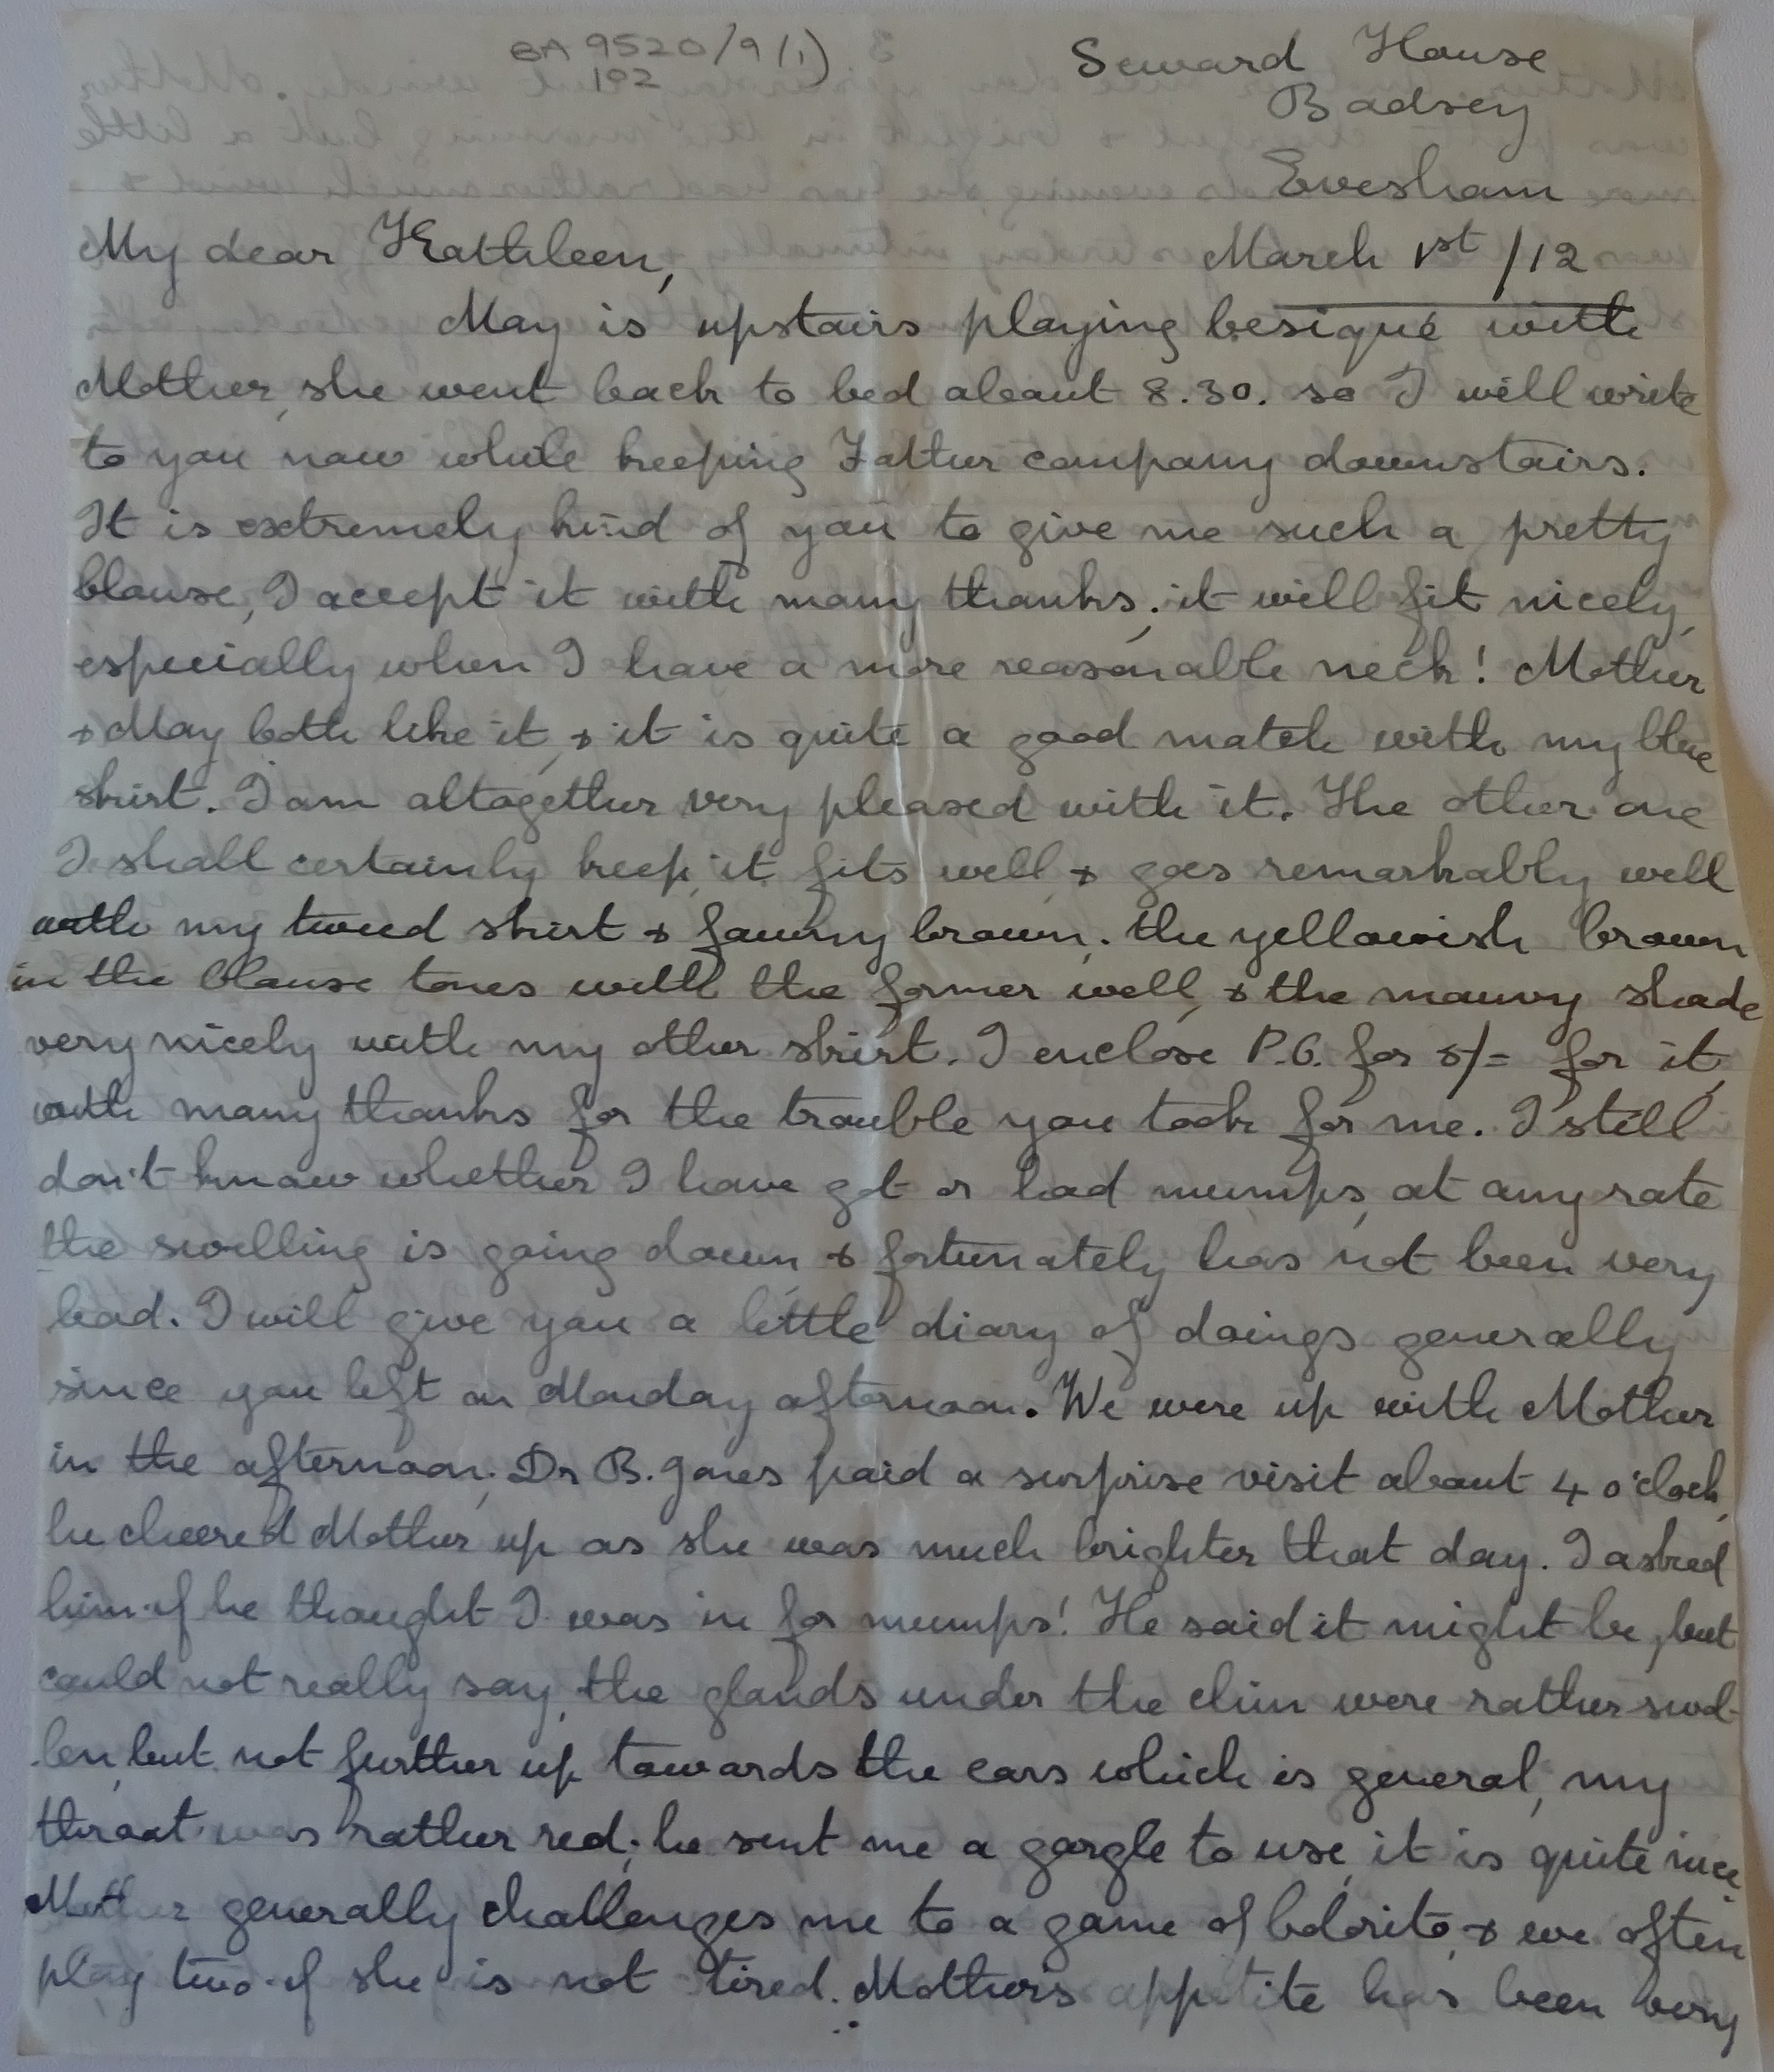 BA 9520/9(1)
192
Seward House
Badsey
Evesham
My dear Kathleen,
March 1st /12
May is upstairs playing besique with
Mother, she went back to bed about 8.30. so I will write
to you now while keeping Father company downstairs.
It is extremely kind of you to give me such a pretty
blouse, I accept it with many thanks; it will fit nicely,
especially when I have a more reasonable neck! Mother
& May both like it, & it is quite a good match with my blue
skirt. I am altogether very pleased with it. The other one
I shall certainly keep, it fits well & goes remarkably well
with my tweed skirt & fawny brown; the yellowish brown
in the blouse tones with the former well, & the mauvy shade
very nicely with my other skirt. I enclose P.O. for 5/= for it,
with many thanks for the trouble you took for me. I still
don't know whether I have got or had mumps, at any rate
the swelling is going down & fortunately has not been very
bad. I will give you a little diary of doings generally
since you left on Monday afternoon. We were up with Mother
in the afternoon; Dr B. Jones paid a surprise visit about 4 o'clock,
he cheered Mother up as she was much brighter that day. I asked
him if he thought I was in for mumps! He said it might be, but
could not really say, the glands under the chin were rather swol-
len, but not further up towards the ears which is general, my
throat was rather red; he sent me a gargle to use, it is quite nice.
Mother generally challenges me to a game of bolorito, & we often
play two if she is not tired. Mother's appetite has been very